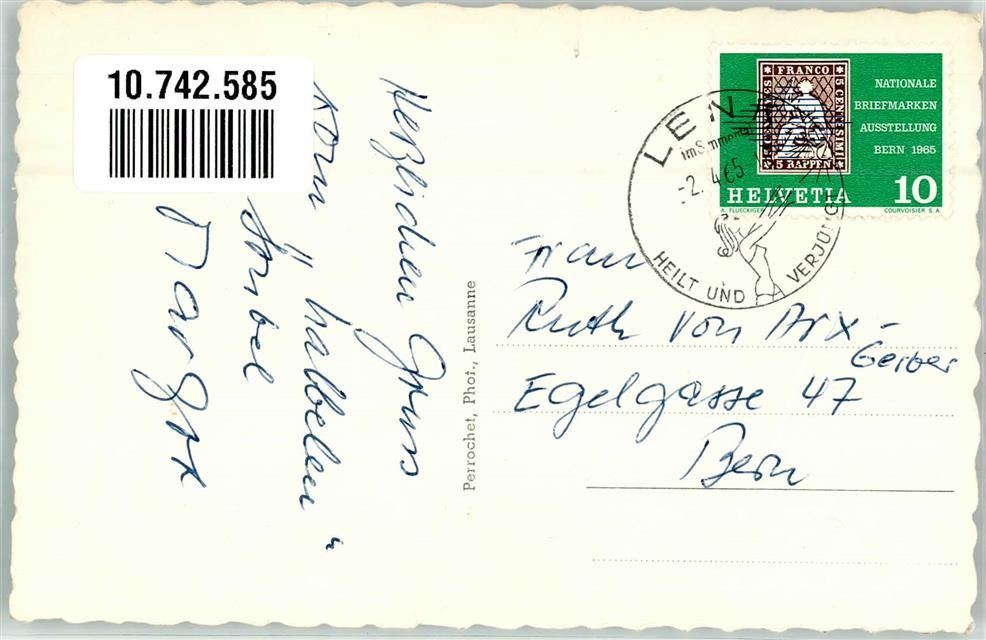 10.742.585
Herzlichen Gruss
vom "halbelen"
Margot
Perrochet, Phot., Lausanne
FRANCO
5 CENTESIMI
5 RAPPEN
NATIONALE
BRIEFMARKEN
AUSSTELLUNG
BERN 1965
HELVETIA 10
A. FLUECKIGER COURVOISIER S.A.
LENK
im Simmental
-2. 4.65
HEILT UND VERJÜNGT
Frau
Ruth von Arx-
Gerber
Egelgasse 47
Bern